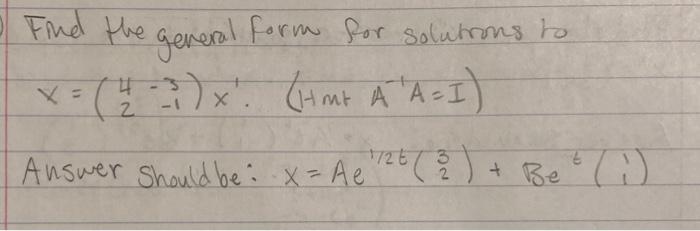 ) Find the general form for solutions to
x = ( 4 -3 ) x'. (Hint A⁻¹A = I)
2 -1
Answer should be: x = Ae^1/2t ( 3 ) + Be^t ( 1 )
2 1